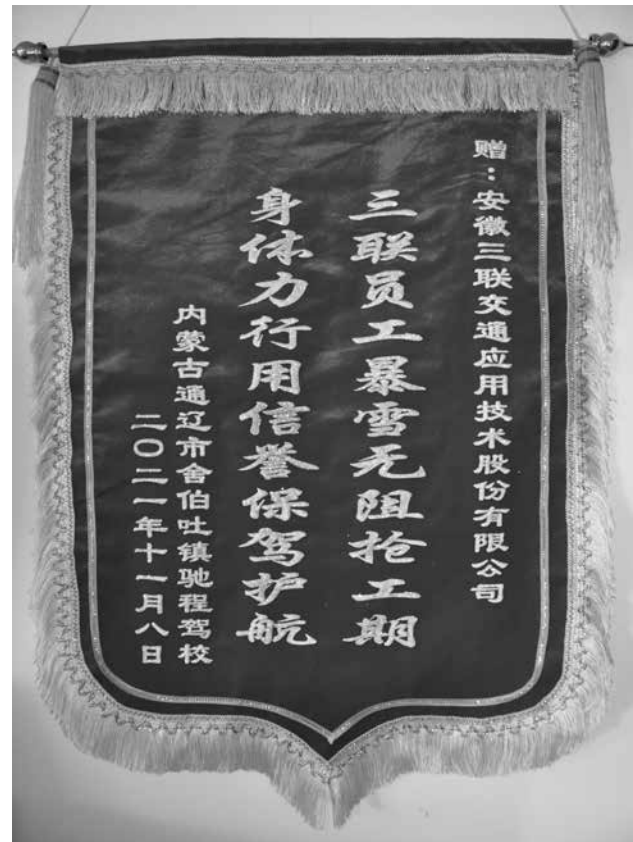 赠：安徽三联交通应用技术股份有限公司
三联员工暴雪无阻抢工期
身体力行用信誉保驾护航
内蒙古通辽市舍伯吐镇驰程驾校
二〇二一年十一月八日